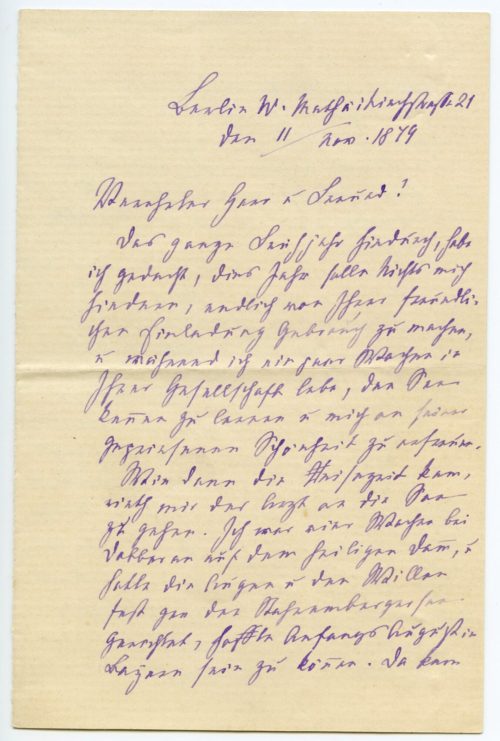 Berlin W. Mathäikirchstraße 21
den 11/ Nov. 1879
Verehrter Herr u Freund!
Das ganze Frühjahr hindurch, habe
ich gedacht, dies Jahr solle Nichts mich
hindern, endlich von Ihrer freundli-
chen Einladung Gebrauch zu machen,
u während ich ein paar Wochen in
Ihrer Gesellschaft lebe, den See
kennen zu lernen u mich an seiner
gepriesenen Schönheit zu erfreuen.
Wie dann die Reisezeit kam,
rieth mir der Arzt an die See
zu gehen. Ich war vier Wochen bei
Dobberan auf dem heiligen Damm, u
hatte die Augen u den Willen
fest gen den Stahrembergersee
gerichtet, hoffte Anfangs August in
Bayern sein zu können. Da kam